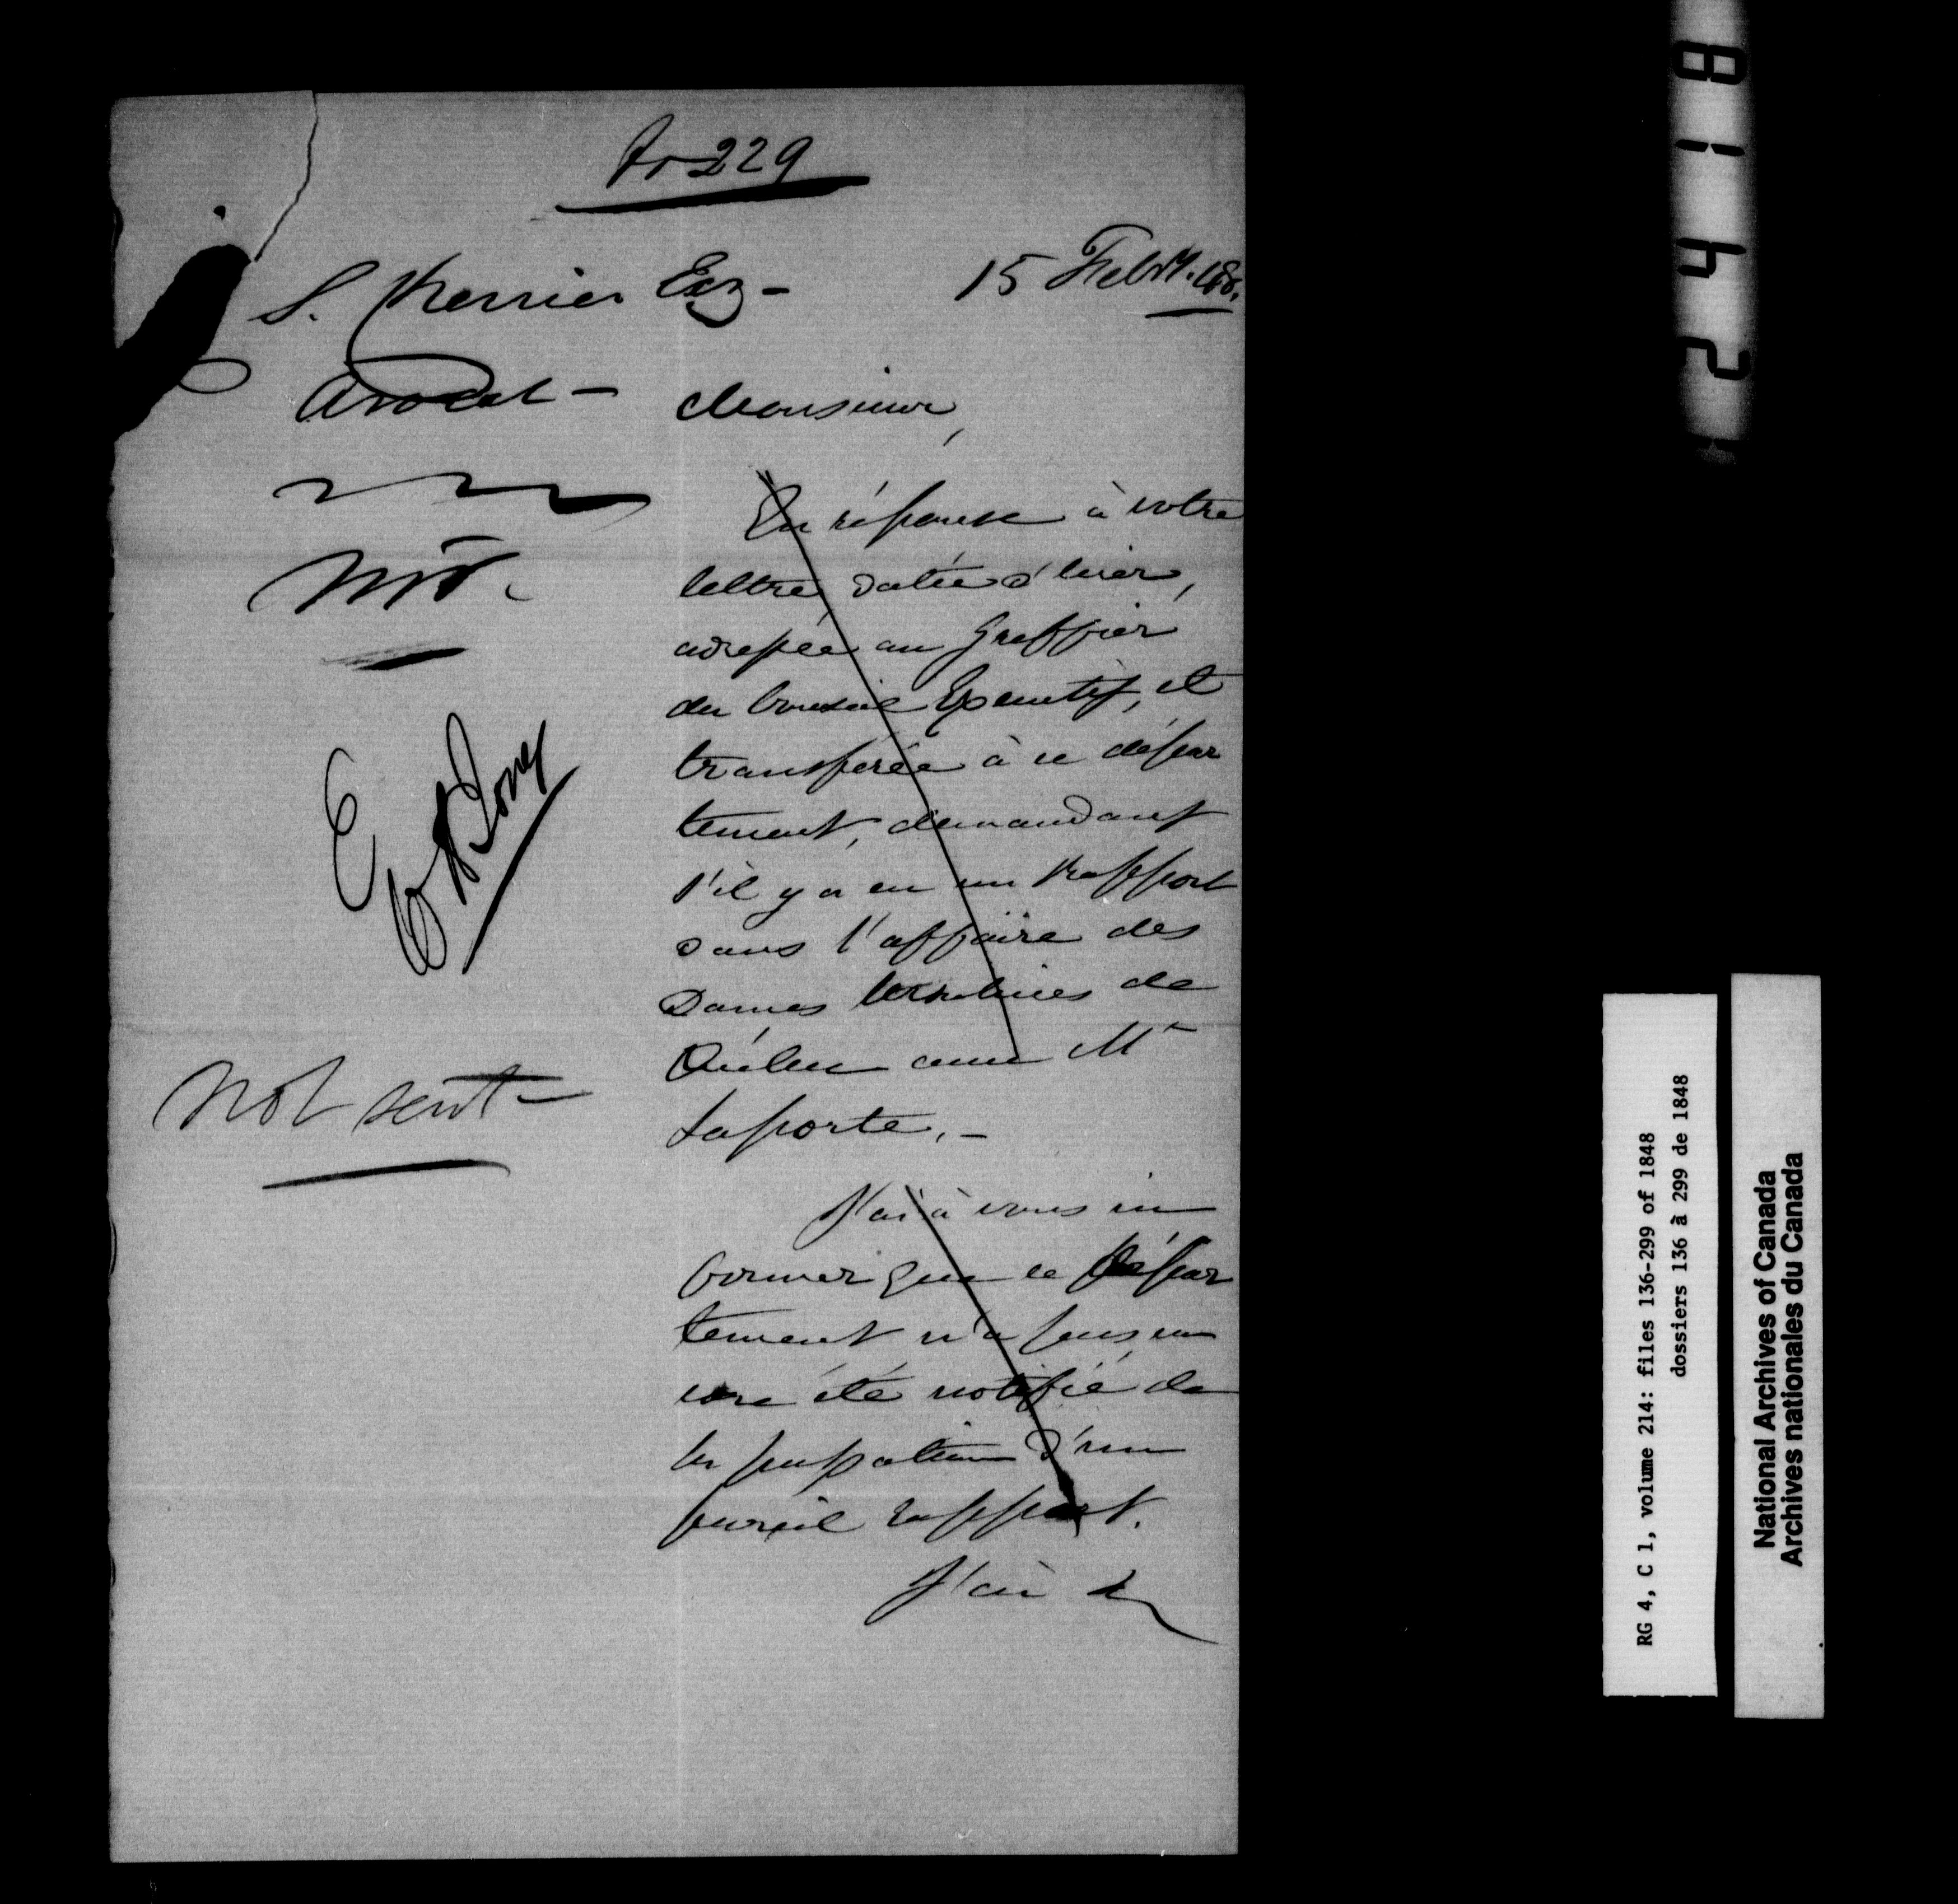 229
15 Feby. 48.
S. Esq -
Avocat -
Monsieur,
En réponse à votre
lettre datée d'hier,
adressée au Greffier
du Conseil Exécutif, et
transférée à ce dépar
tement, demandant
s'il y a eu un Rapport
dans l'affaire des
Dames Ursulines de
Québec avec Mr
Laporte. -
J'ai à vous in
former que ce Dépar
tement n'a pas en
core été notifié de
la passation d'un
pareil rapport.
J'ai &
Not sent -
8142
RG 4, C 1, volume 214: files 136-299 of 1848
dossiers 136 à 299 de 1848
National Archives of Canada
Archives nationales du Canada